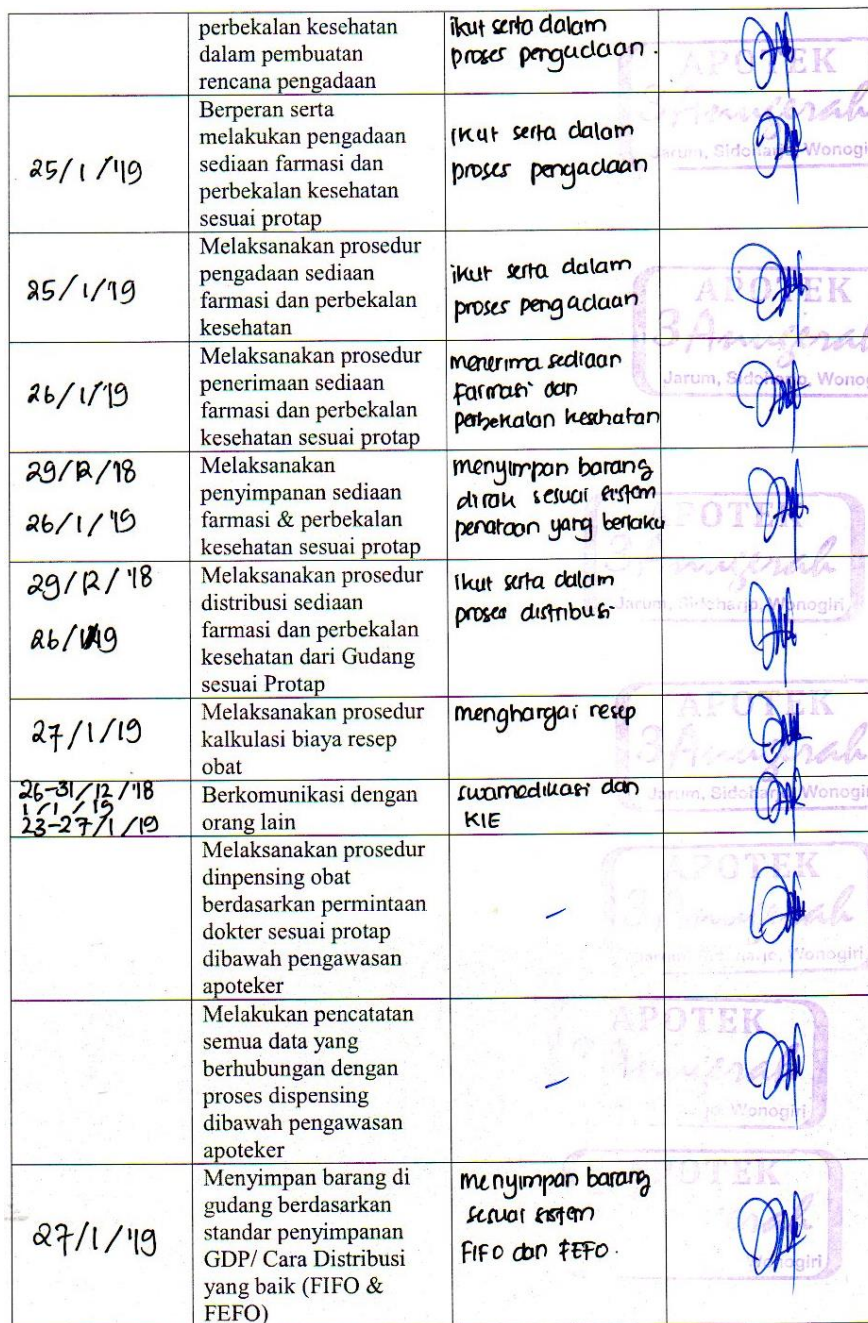 perbekalan kesehatan
dalam pembuatan
rencana pengadaan
ikut serta dalam
proses pengadaan.
APOTEK
3 Anugerah
Jarum, Sidoharjo, Wonogiri
25/1/'19
Berperan serta
melakukan pengadaan
sediaan farmasi dan
perbekalan kesehatan
sesuai protap
ikut serta dalam
proses pengadaan
25/1/19
Melaksanakan prosedur
pengadaan sediaan
farmasi dan perbekalan
kesehatan
ikut serta dalam
proses pengadaan
APOTEK
3 Anugerah
Jarum, Sidoharjo, Wonogiri
26/1/'19
Melaksanakan prosedur
penerimaan sediaan
farmasi dan perbekalan
kesehatan sesuai protap
menerima sediaan
farmasi dan
perbekalan kesehatan
29/12/'18
26/1/'19
Melaksanakan
penyimpanan sediaan
farmasi & perbekalan
kesehatan sesuai protap
menyimpan barang
dirak sesuai sistem
penataan yang berlaku
APOTEK
3 Anugerah
Jarum, Sidoharjo, Wonogiri
29/12/'18
26/1/19
Melaksanakan prosedur
distribusi sediaan
farmasi dan perbekalan
kesehatan dari Gudang
sesuai Protap
ikut serta dalam
proses distribusi
27/1/19
Melaksanakan prosedur
kalkulasi biaya resep
obat
menghargai resep
APOTEK
3 Anugerah
Jarum, Sidoharjo, Wonogiri
26-31/12/'18
1/1/19
23-27/1/19
Berkomunikasi dengan
orang lain
swamedikasi dan
KIE
Melaksanakan prosedur
dinpensing obat
berdasarkan permintaan
dokter sesuai protap
dibawah pengawasan
apoteker
-
APOTEK
3 Anugerah
Wonogiri
Melakukan pencatatan
semua data yang
berhubungan dengan
proses dispensing
dibawah pengawasan
apoteker
-
APOTEK
Anugerah
Wonogiri
27/1/'19
Menyimpan barang di
gudang berdasarkan
standar penyimpanan
GDP/ Cara Distribusi
yang baik (FIFO &
FEFO)
menyimpan barang
sesuai sistem
FIFO dan FEFO.